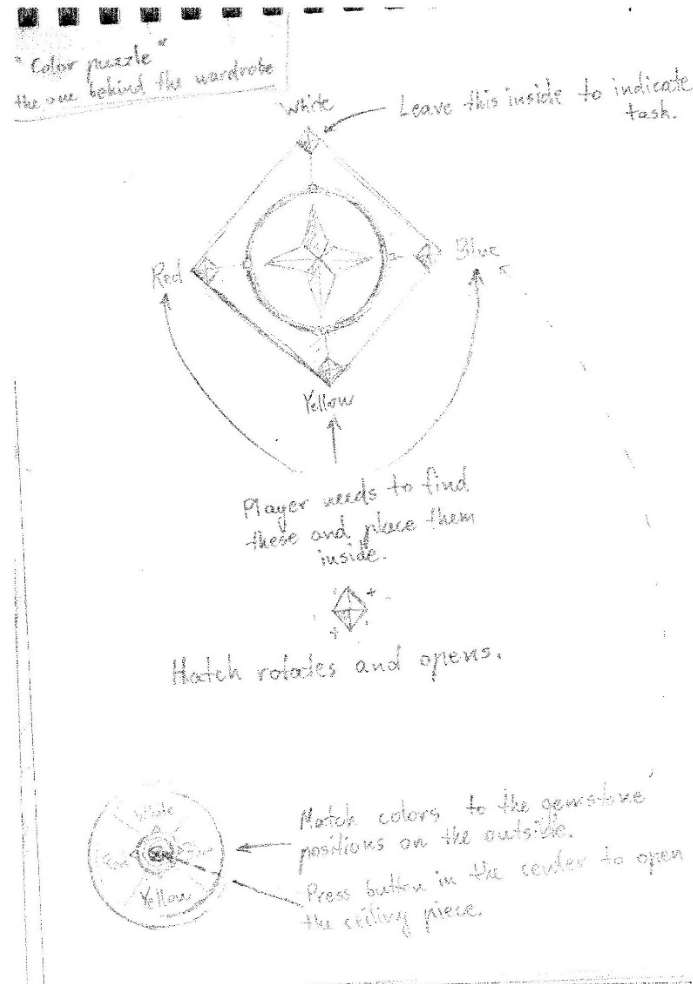 "Color puzzle"
the one behind the wardrobe
White
Leave this inside to indicate
task.
Red
Blue
Yellow
Player needs to find
these and place them
inside.
Hatch rotates and opens.
White
Yellow
Match colors to the gemstone'
positions on the outside.
Press button in the center to open
the ceiling piece.